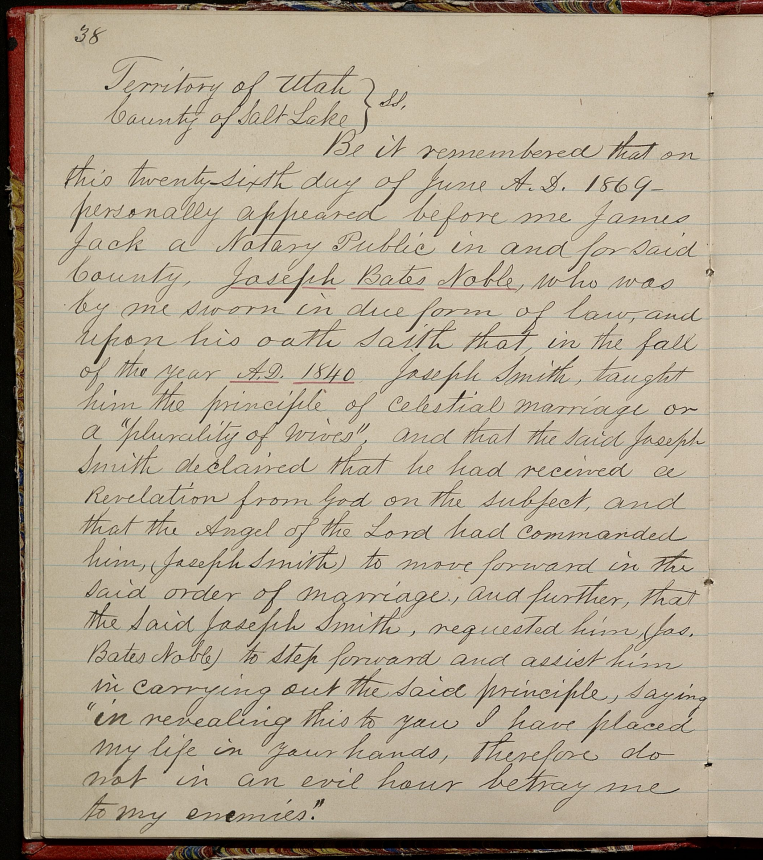 38
Territory of Utah
County of Salt Lake } ss.
Be it remembered that on
this twenty-sixth day of June A.D. 1869–
personally appeared before me James
Jack a Notary Public in and for said
County, Joseph Bates Noble, who was
by me sworn in due form of law, and
upon his oath saith that, in the fall
of the year A.D. 1840 Joseph Smith, taught
him the principle of celestial marriage or
a "plurality of wives", and that the said Joseph
Smith declaired that he had recieved a
Revelation from God on the subject, and
that the Angel of the Lord had commanded
him, (Joseph Smith) to move forward in the
said order of marriage, and further, that
the said Joseph Smith, requested him, (Jos.
Bates Noble) to step forward and assist him
in carrying out the said principle, saying
"in revealing this to you I have placed
my life in your hands, therefore do
not in an evil hour betray me
to my enemies."